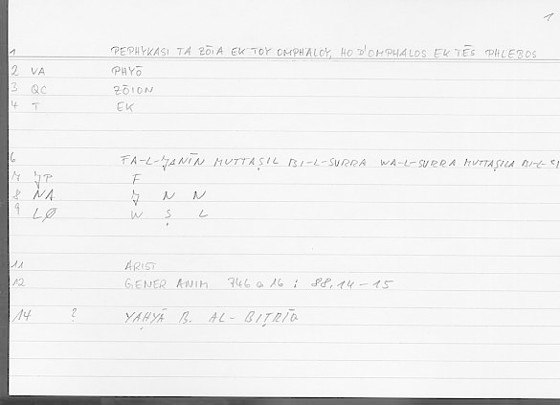 1
1 PEPHYKASI TA ZŌIA EK TOY OMPHALOY, HO D'OMPHALOS EK TĒS PHLEBOS
2 VA PHYŌ
3 QC ZŌION
4 T EK
6 FA-L-ǦANĪN MUTTAṢIL BI-L-SURRA WA-L-SURRA MUTTAṢILA BI-L-
7 ǦP F
8 NA Ǧ N N
9 LØ W Ṣ L
11 ARIST
12 GENER ANIM 746 a 16 ; 88,14-15
14 ? YAḤYĀ B. AL-BIṬRĪQ